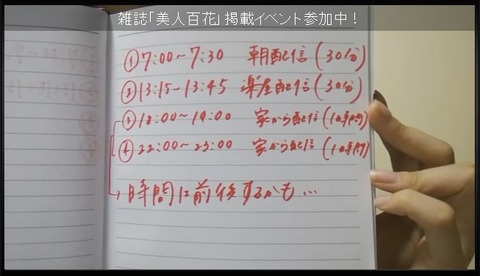 雑誌「美人百花」掲載イベント参加中！
①7:00~7:30 朝配信(30分)
②13:15~13:45 楽屋配信(30分)
③18:00~19:00 家から配信(1時間)
④22:00~23:00 家から配信(1時間)
→時間は前後するかも…